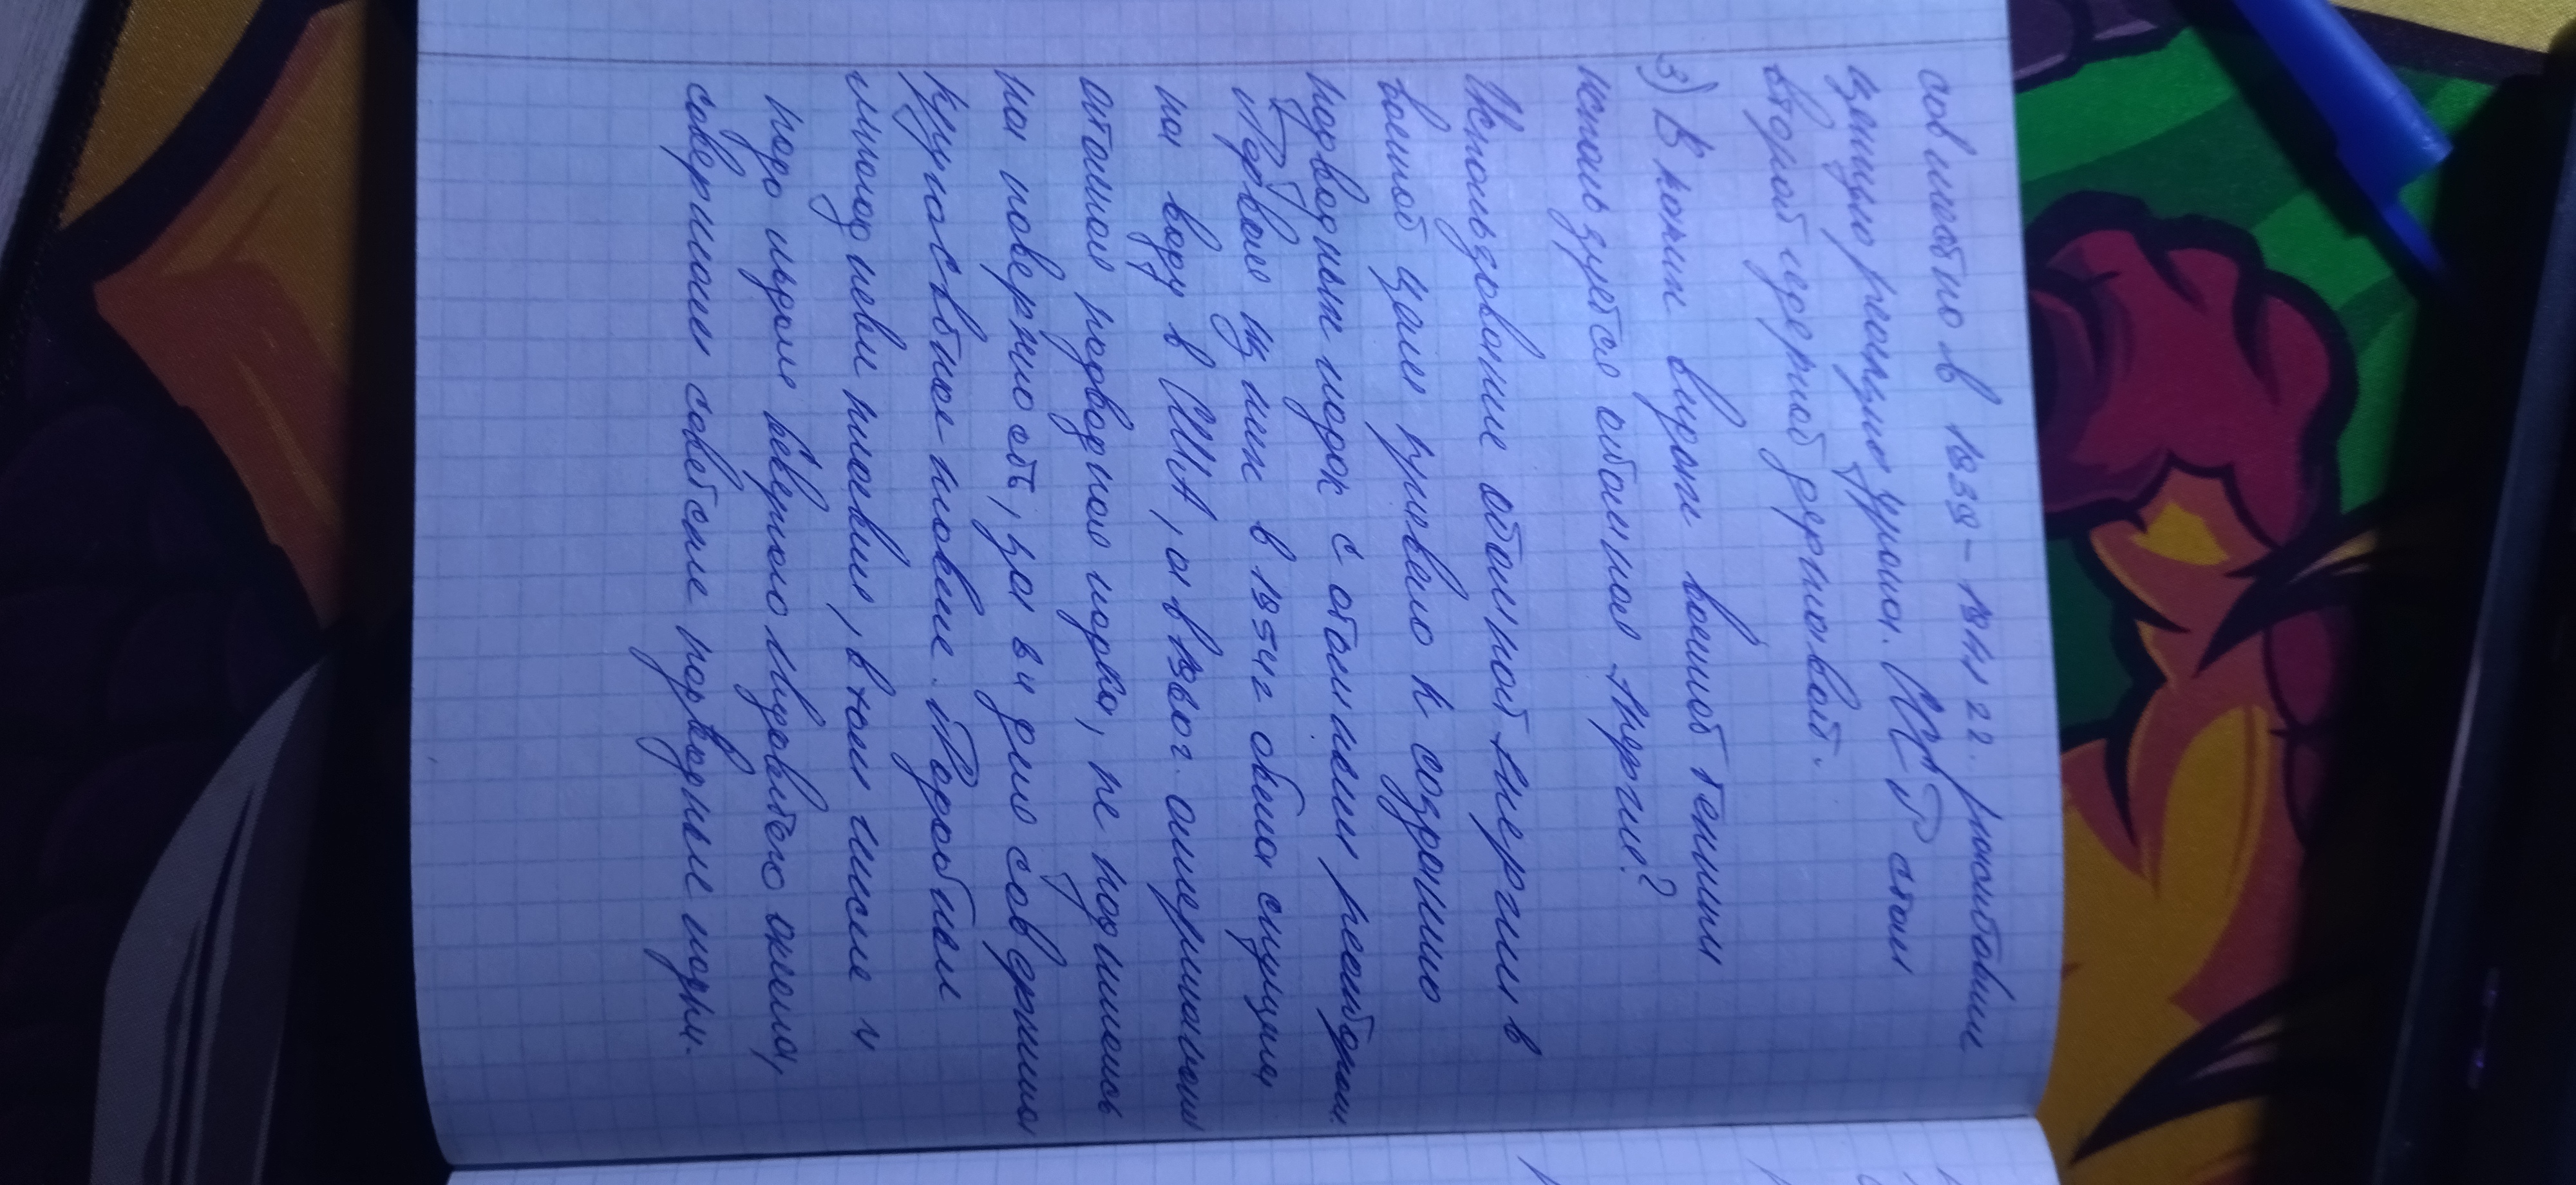 совместно в 1939-1941 гг. рассчитавши
цепную реакцию урана. СССР стал
второй ядерной державой.
3) В каких видах военной техники
используется атомная энергия?
Использование атомной энергии в
военной цели привело к созданию
подводных лодок с атомными реакторами.
Первая из них в 1954 г была спущена
на воду в США, а в 1960г. американская
атомная подводная лодка, не поднимаясь
на поверхность, за 84 дня совершила
кругосветное плавание. Подобные
многодневные плавания, в том числе и
подо льдом Северного Ледовитого океана,
совершали советские подводные лодки.